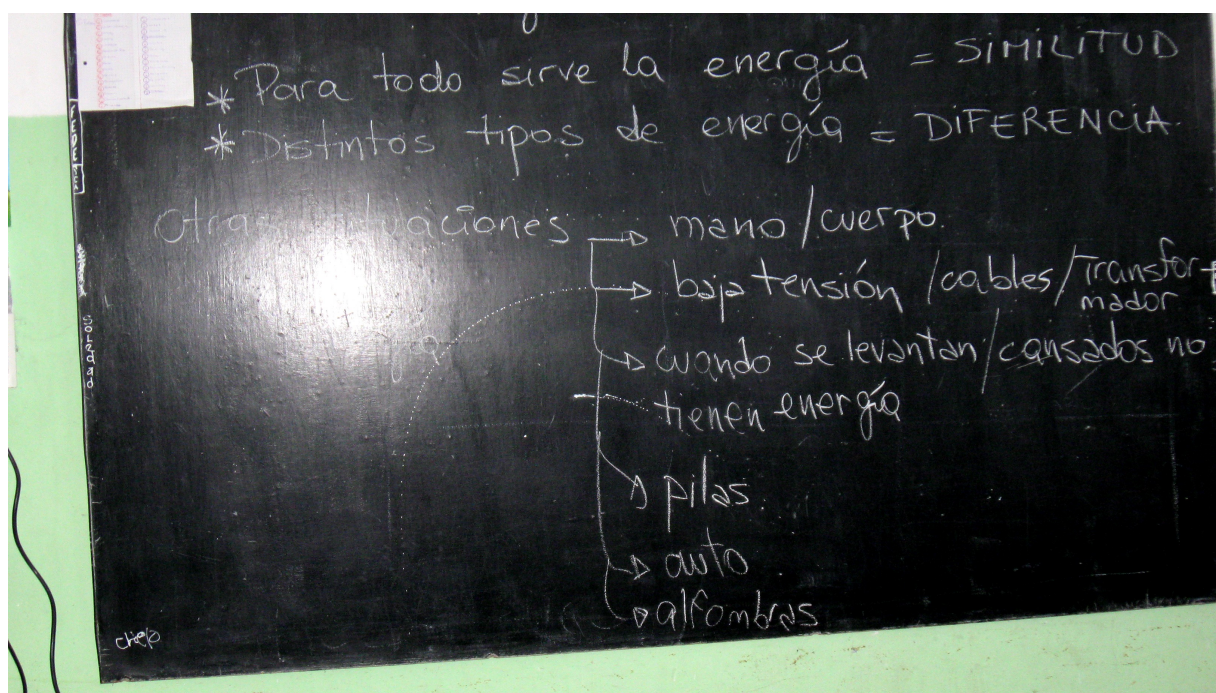 * Para todo sirve la energía = SIMILITUD
* Distintos tipos de energía = DIFERENCIA.
Otras situaciones
mano / cuerpo.
baja tensión / cables / Transfor-
mador
cuando se levantan / cansados no
tienen energía
pilas.
auto
alfombras
Soledad